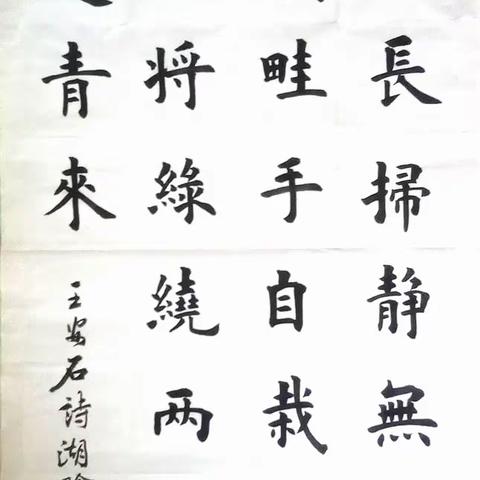 長掃静無
畦手自栽
将綠繞两
青來
王安石詩湖